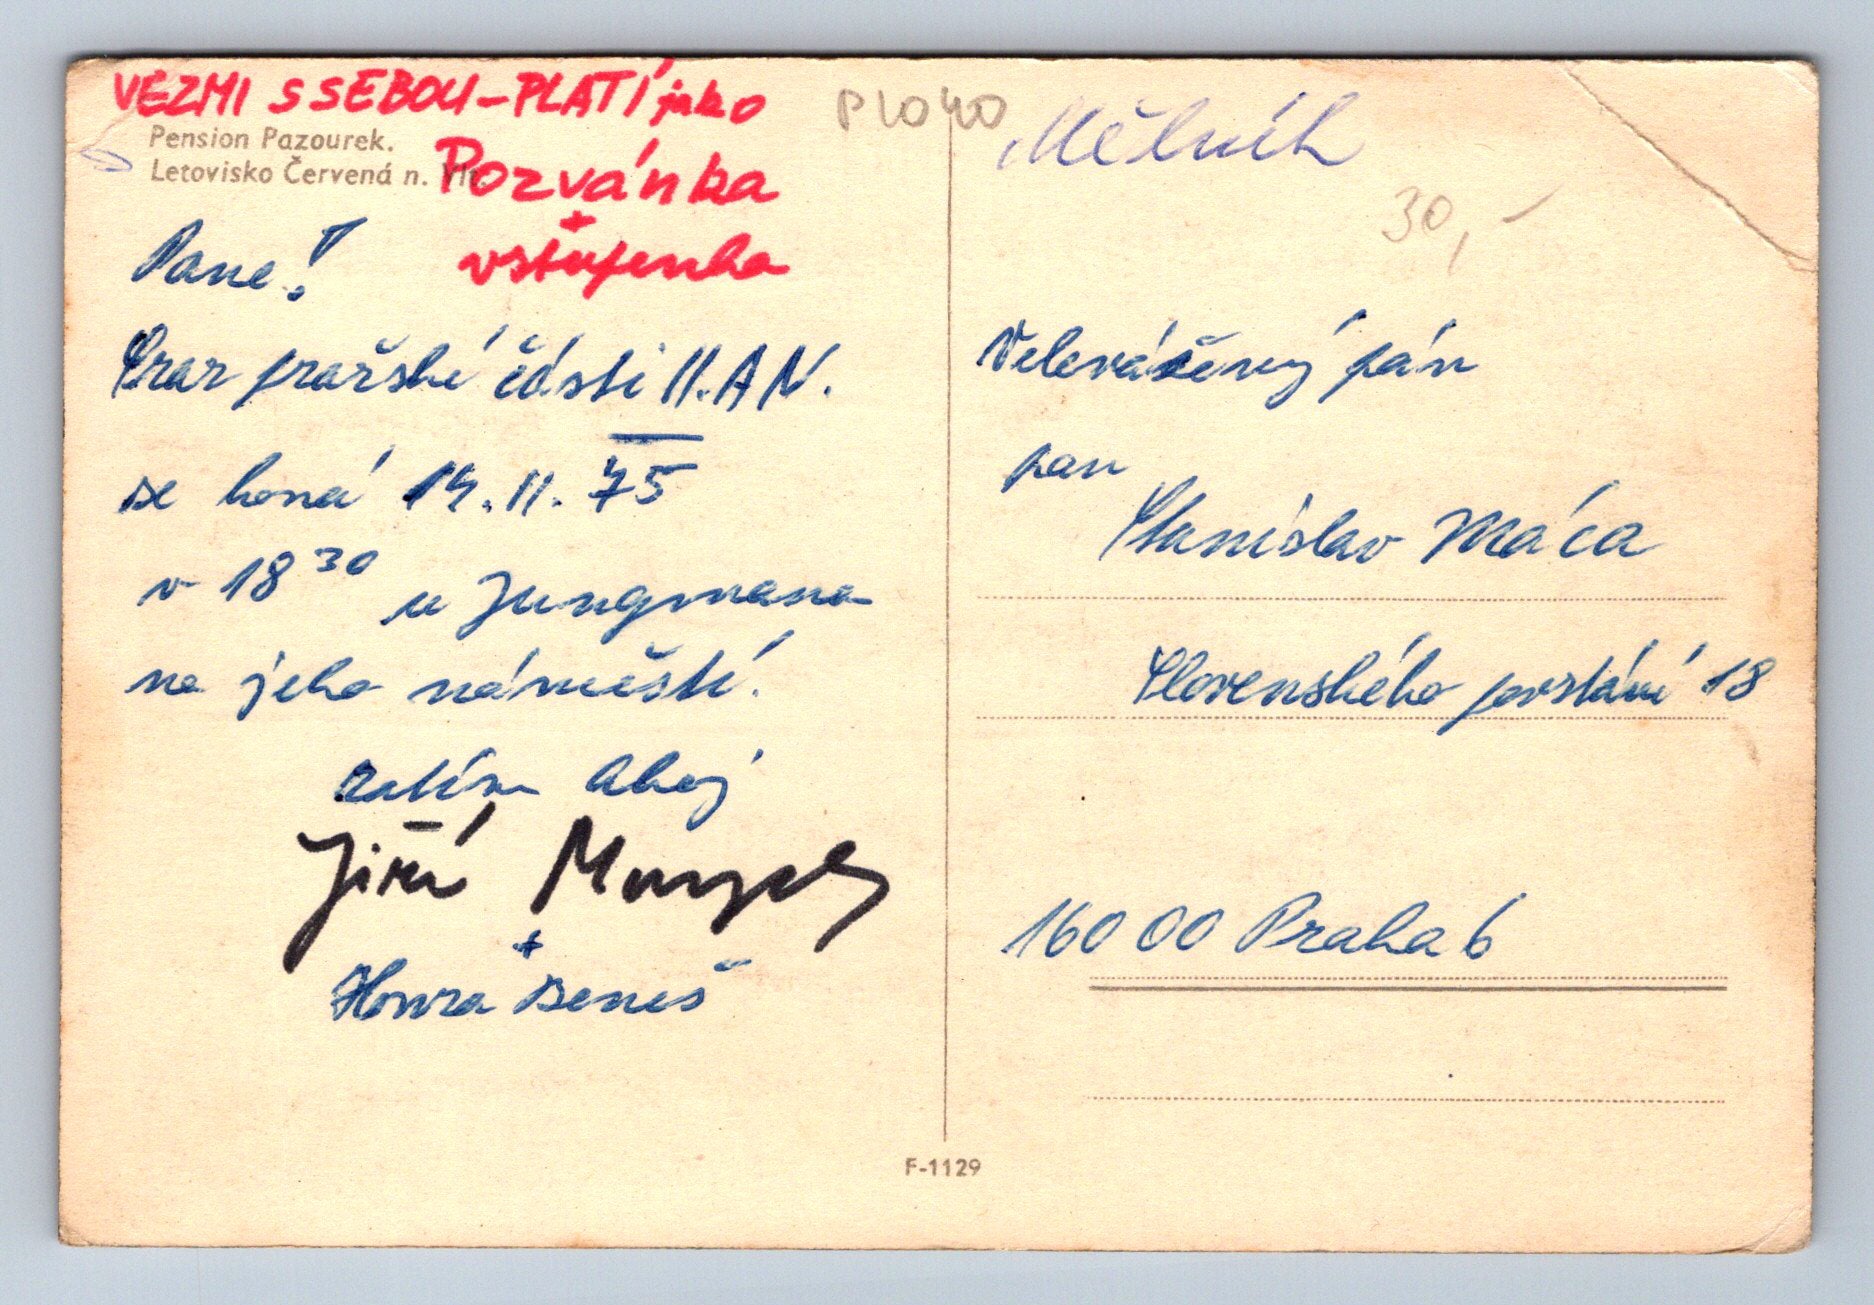 VEZMI S SEBOU - PLATÍ jako
Pozvánka
+
vstupenka
Pension Pazourek.
Letovisko Červená n. Vlt.
Pane!
Sraz pražské části II. A N.
se koná 14. 11. 75
v 18 30 u Jungmana
na jeho náměstí.
zatím ahoj
Jiří
+
Honza Beneš
P1040
Mělník
30,-
Velevážený pán
pan
Stanislav Máca
Slovenského povstání 18
160 00 Praha 6
F-1129